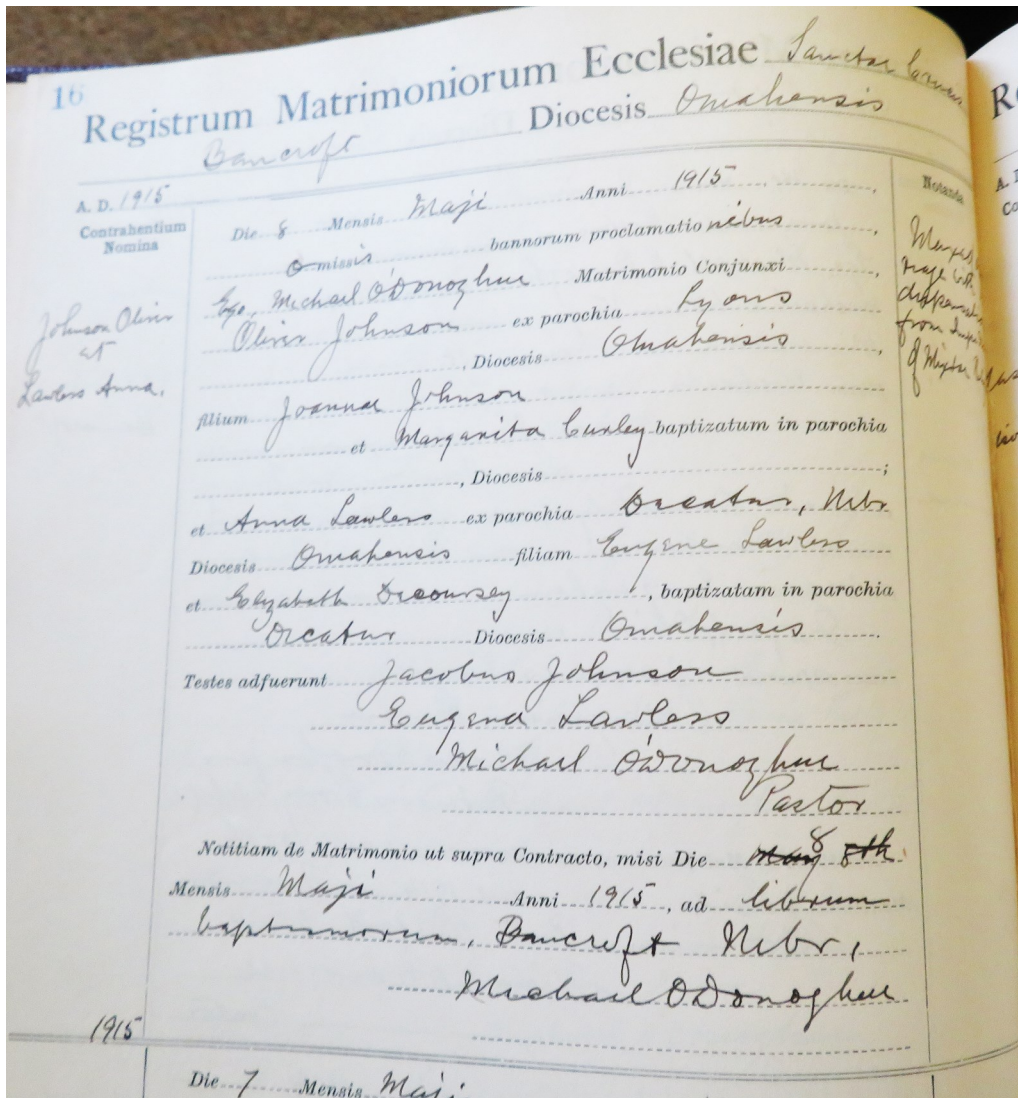 16
Registrum Matrimoniorum Ecclesiae Sanctae
Bancroft Diocesis Omahensis
A. D. 1915
Contrahentium
Nomina
Notanda
Die 8 Mensis Maji Anni 1915,
omissis bannorum proclamationibus,
Ego, Michael O'Donoghue Matrimonio Conjunxi,
Oliver Johnson ex parochia Lyons
, Diocesis Omahensis,
filium Joannae Johnson
et Margarita Curley baptizatum in parochia
, Diocesis ;
et Anna Lawless ex parochia Decatur, Nebr
Diocesis Omahensis filiam Eugene Lawless
et Elizabeth Decoursey, baptizatam in parochia
Decatur Diocesis Omahensis.
Johnson Oliver
et
Lawless Anna,
dispensation
from
of
Testes adfuerunt Jacobus Johnson
Eugena Lawless
Michael O'Donoghue
Pastor
Notitiam de Matrimonio ut supra Contracto, misi Die may 8 8th
Mensis Maji Anni 1915, ad liberum
baptismorum, Bancroft Nebr,
Michael O'Donoghue
1915
Die 7 Mensis Maji